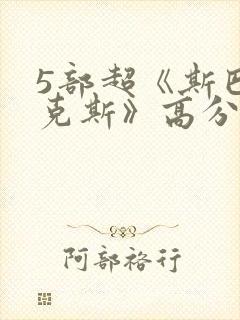 5部超《斯巴
克斯》高分
阿部裕行